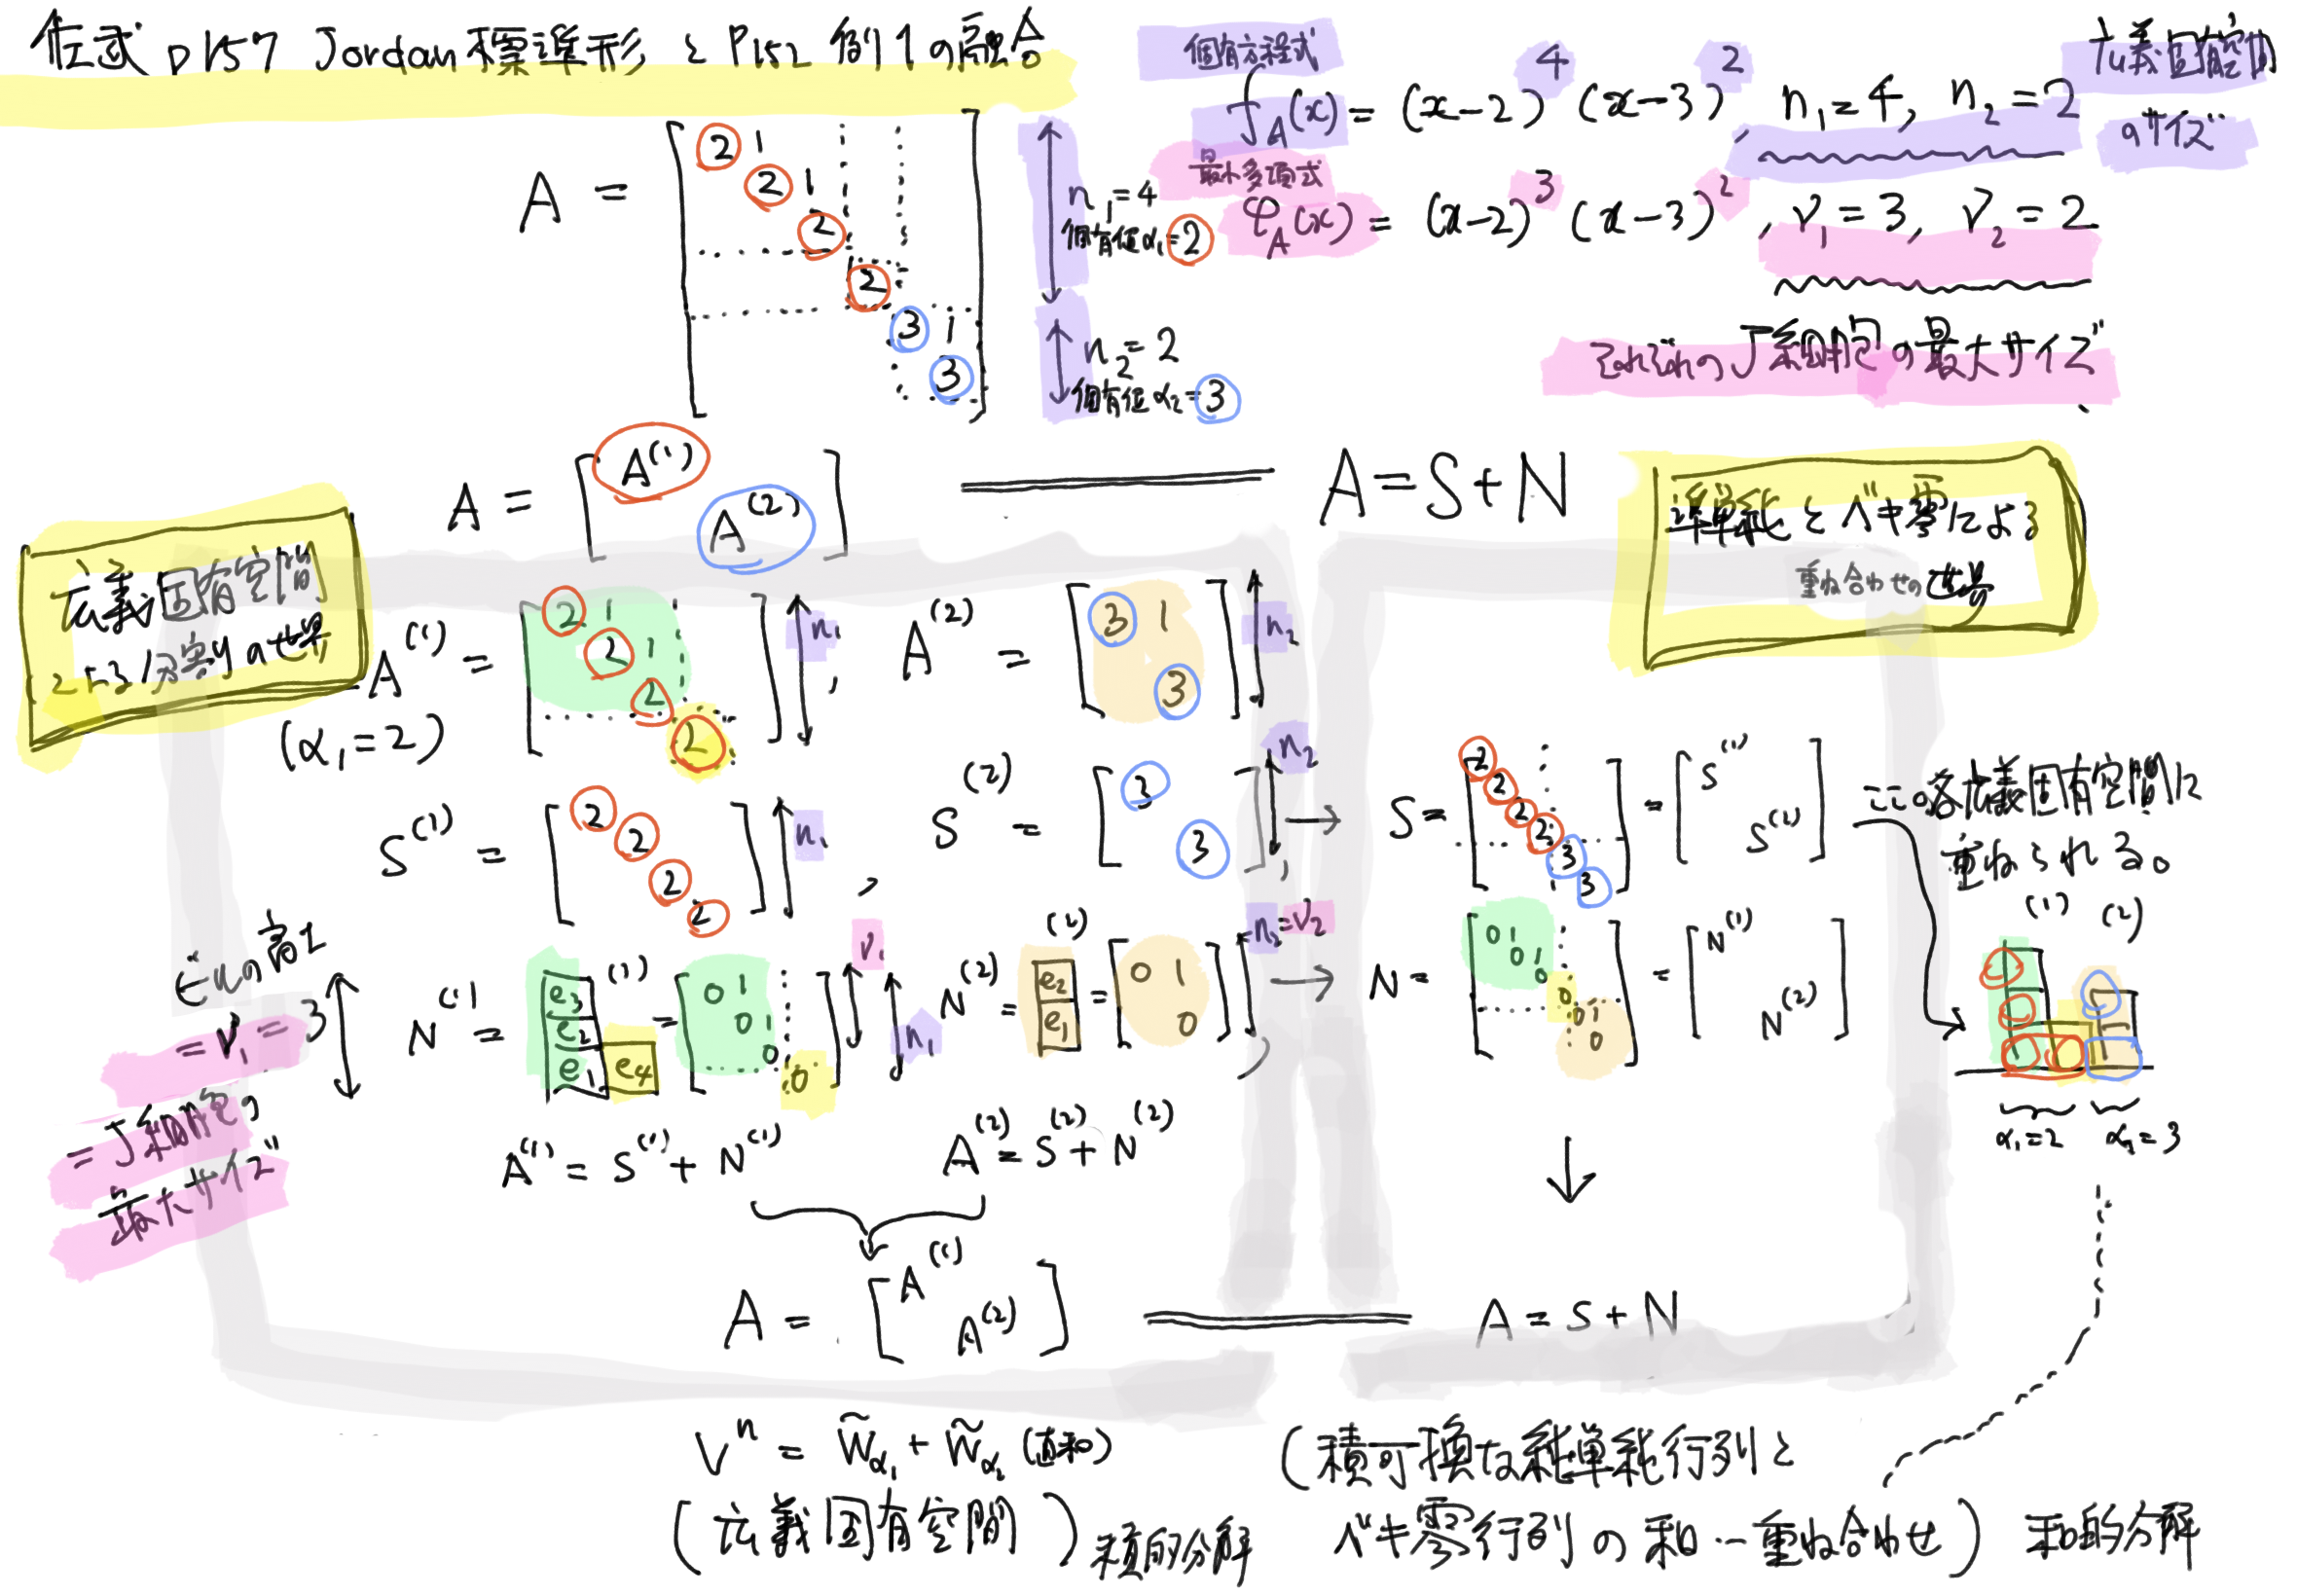 佐武 p157 Jordan標準形 と P152 例1の融合
個有方程式
f_A(x) = (x-2)^4 (x-3)^2, n_1=4, n_2=2
広義固有空間
のサイズ
最小多項式
φ_A(x) = (x-2)^3 (x-3)^2, ν_1=3, ν_2=2
それぞれのJ細胞の最大サイズ
A = [2 1
2 1
2
2
3 1
3]
n_1=4
個有値α_1=2
n_2=2
個有値α_2=3
A = [A^(1) A^(2)]
A=S+N
準単純とベキ零による
重ね合わせの世界
広義固有空間
による分割の世界
A^(1) = [2 1
2 1
2
2] n_1,
(α_1=2)
A^(2) = [3 1
3] n_2
S^(1) = [2
2
2
2] n_1,
S^(2) = [3
3] n_2,
→ S= [2
2
2
2
3
3] = [S^(1) S^(2)]
ここの各広義固有空間に
重ねられる。
(1) (2)
α_1=2 α_2=3
ビルの高さ
= ν_1 = 3
= J細胞の
最大サイズ
N^(1) = [e_3
e_2
e_1 e_4]^(1) = [0 1
0 1
0
0] ν_1 n_1
N^(2) = [e_2
e_1]^(2) = [0 1
0] n_2=ν_2,
→ N= [0 1
0 1
0
0
0 1
0] = [N^(1) N^(2)]
A^(1) = S^(1) + N^(1)
A^(2) = S^(2) + N^(2)
A = [A^(1) A^(2)]
↓
A = S + N
V^n = W̃_α1 + W̃_α2 (直和)
(広義固有空間) 積的分解
(積可換な純単純行列と
ベキ零行列の和…重ね合わせ) 和的分解